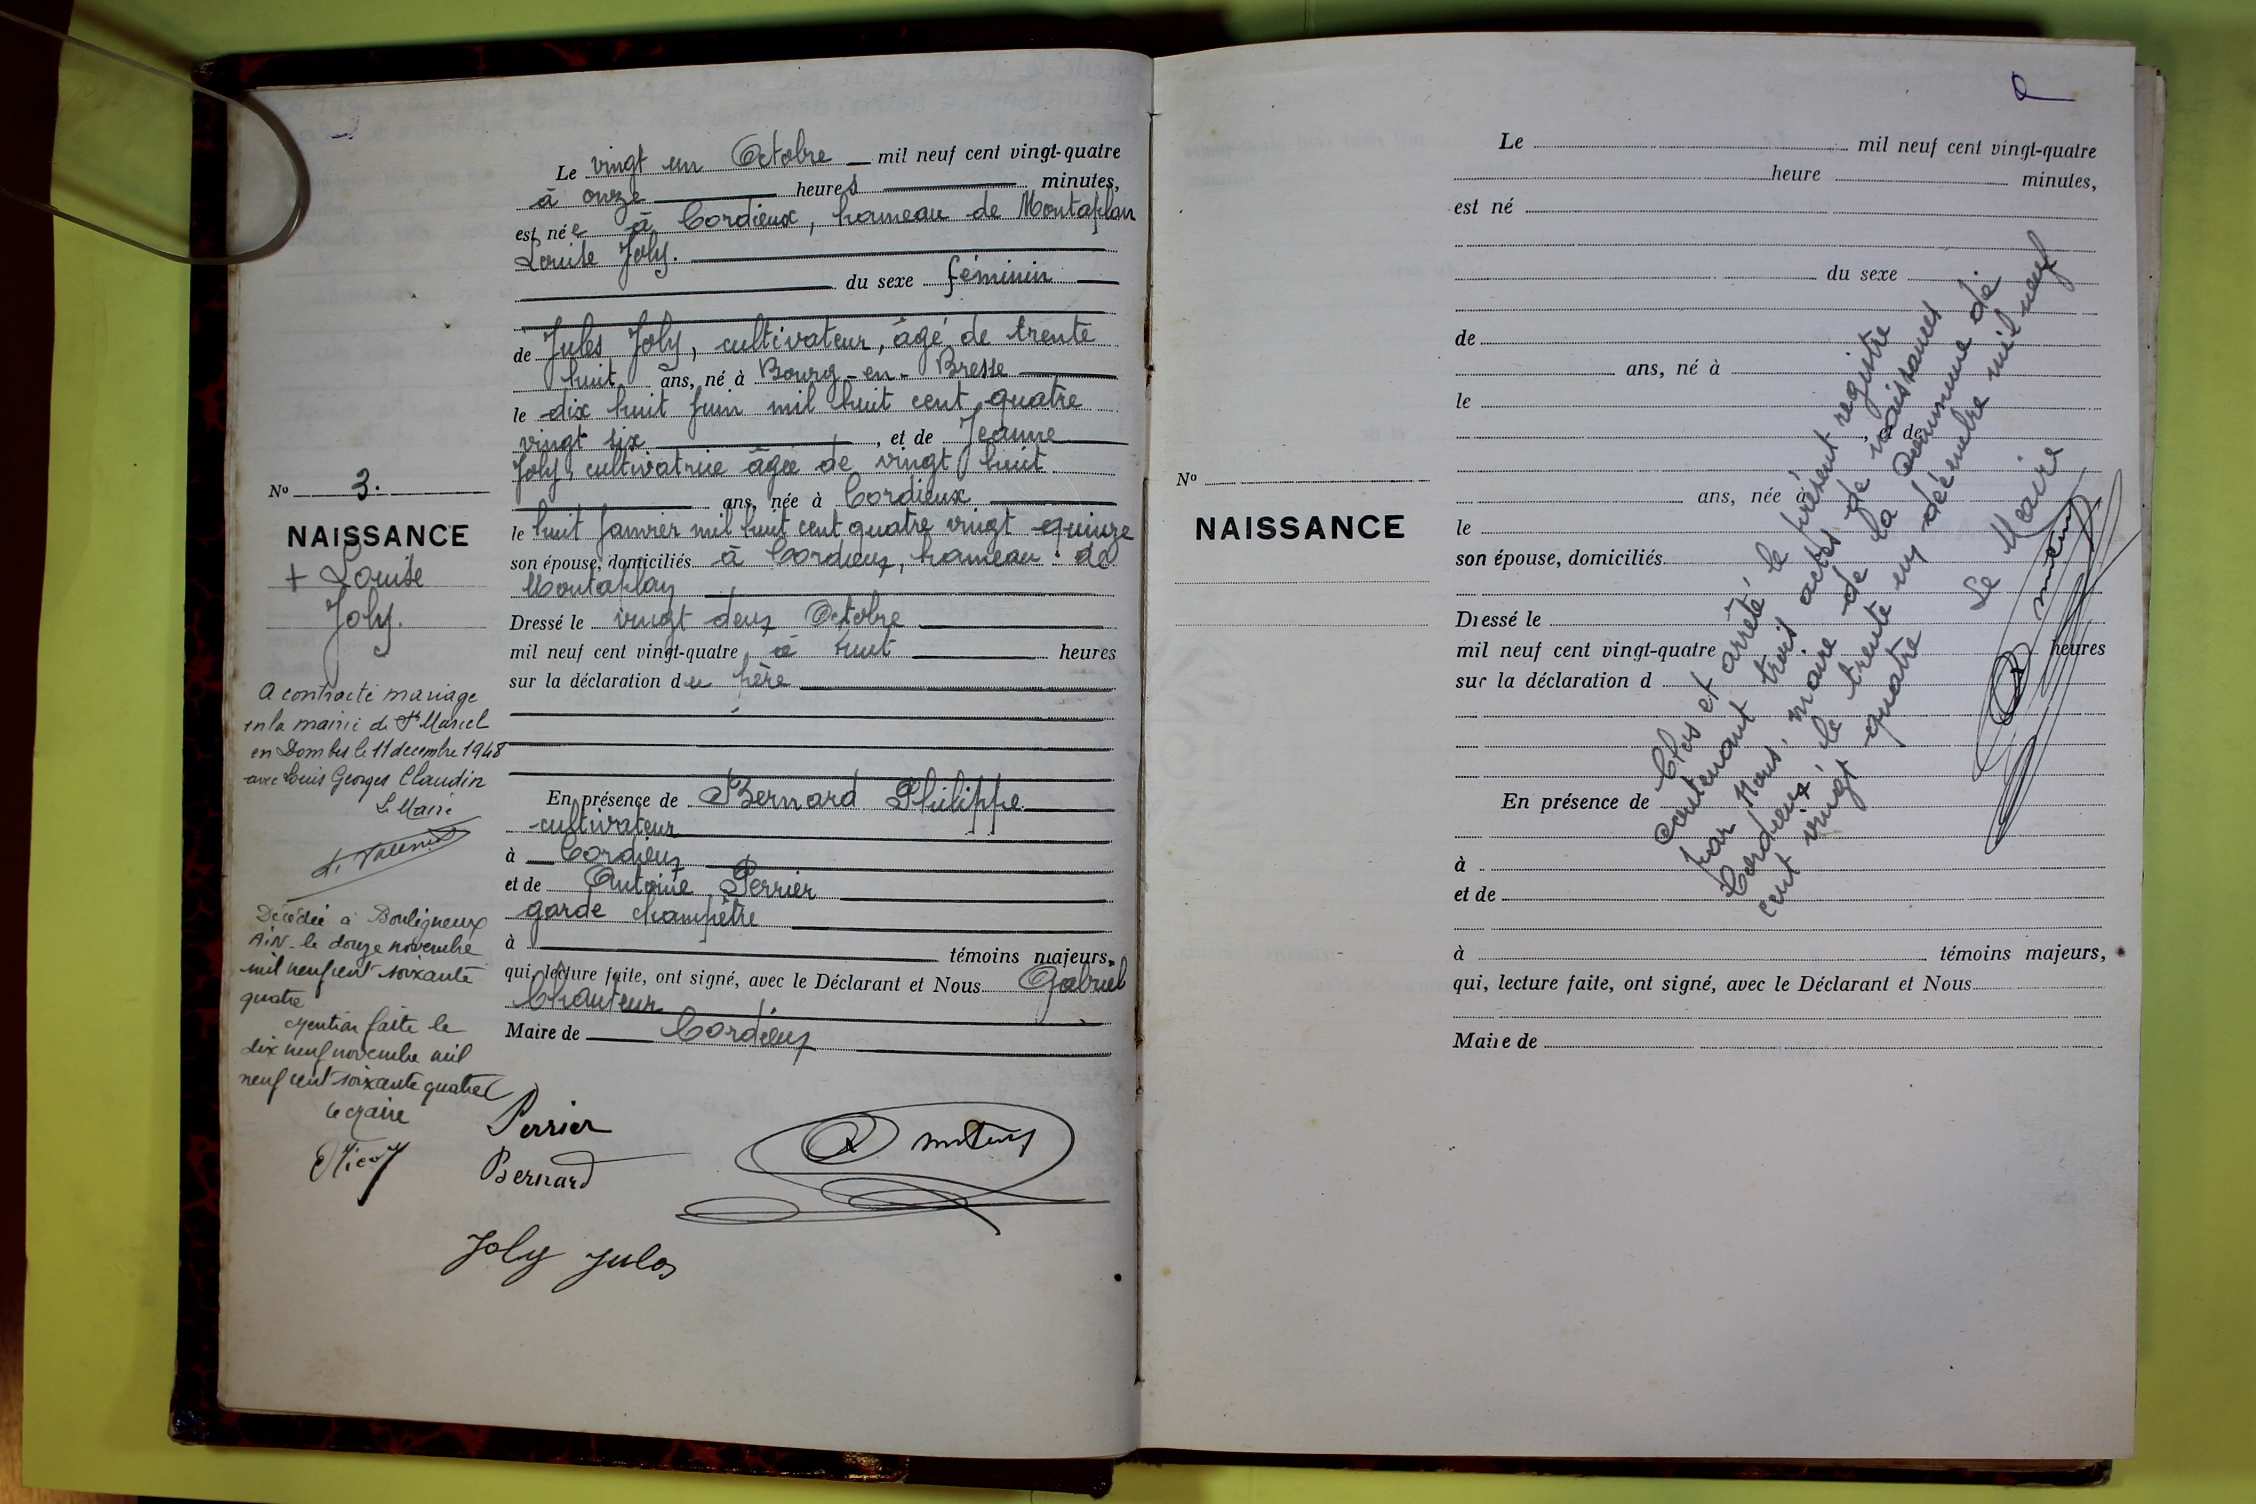 Le vingt un Octobre mil neuf cent vingt-quatre
à onze heures minutes,
est née à Cordieux, hameau de Montaplan
Louise Joly.
du sexe féminin
de Jules Joly, cultivateur, âgé de trente
huit ans, né à Bourg-en-Bresse
le dix huit Juin mil huit cent quatre
vingt six, et de Jeanne
Joly, cultivatrice âgée de vingt huit
ans, née à Cordieux
le huit Janvier mil huit cent quatre vingt quinze
son épouse, domiciliés à Cordieux, hameau de
Montaplan
Dressé le vingt deux Octobre
mil neuf cent vingt-quatre à huit heures
sur la déclaration du père
En présence de Bernard Philippe
cultivateur
à Cordieux
et de Antoine Perrier
garde champêtre
à témoins majeurs,
qui, lecture faite, ont signé, avec le Déclarant et Nous Gabriel
Maire de Cordieux
Perrier
Bernard
Joly Jules
No 3.
NAISSANCE
+ Louise
Joly.
A contracté mariage
en la mairie de St Marcel
en Dombes le 11 décembre 1948
avec Louis Georges Claudin
Le Maire
Décédée à Bouligneux
AiN - le douze novembre
mil neuf cent soixante
quatre
Mention faite le
dix neuf novembre mil
neuf cent soixante quatre
Le Maire
Le mil neuf cent vingt-quatre
heure minutes,
est né
du sexe
de
ans, né à
le
, et de
ans, née à
le
son épouse, domiciliés
Dressé le
mil neuf cent vingt-quatre heures
sur la déclaration d
En présence de
à
et de
à témoins majeurs,
qui, lecture faite, ont signé, avec le Déclarant et Nous
Maire de
No
NAISSANCE
Clos et arrêté le présent registre
contenant trois actes de naissances
par Nous, maire de la Commune de
Cordieux, le trente un décembre mil neuf
cent vingt quatre
Le Maire